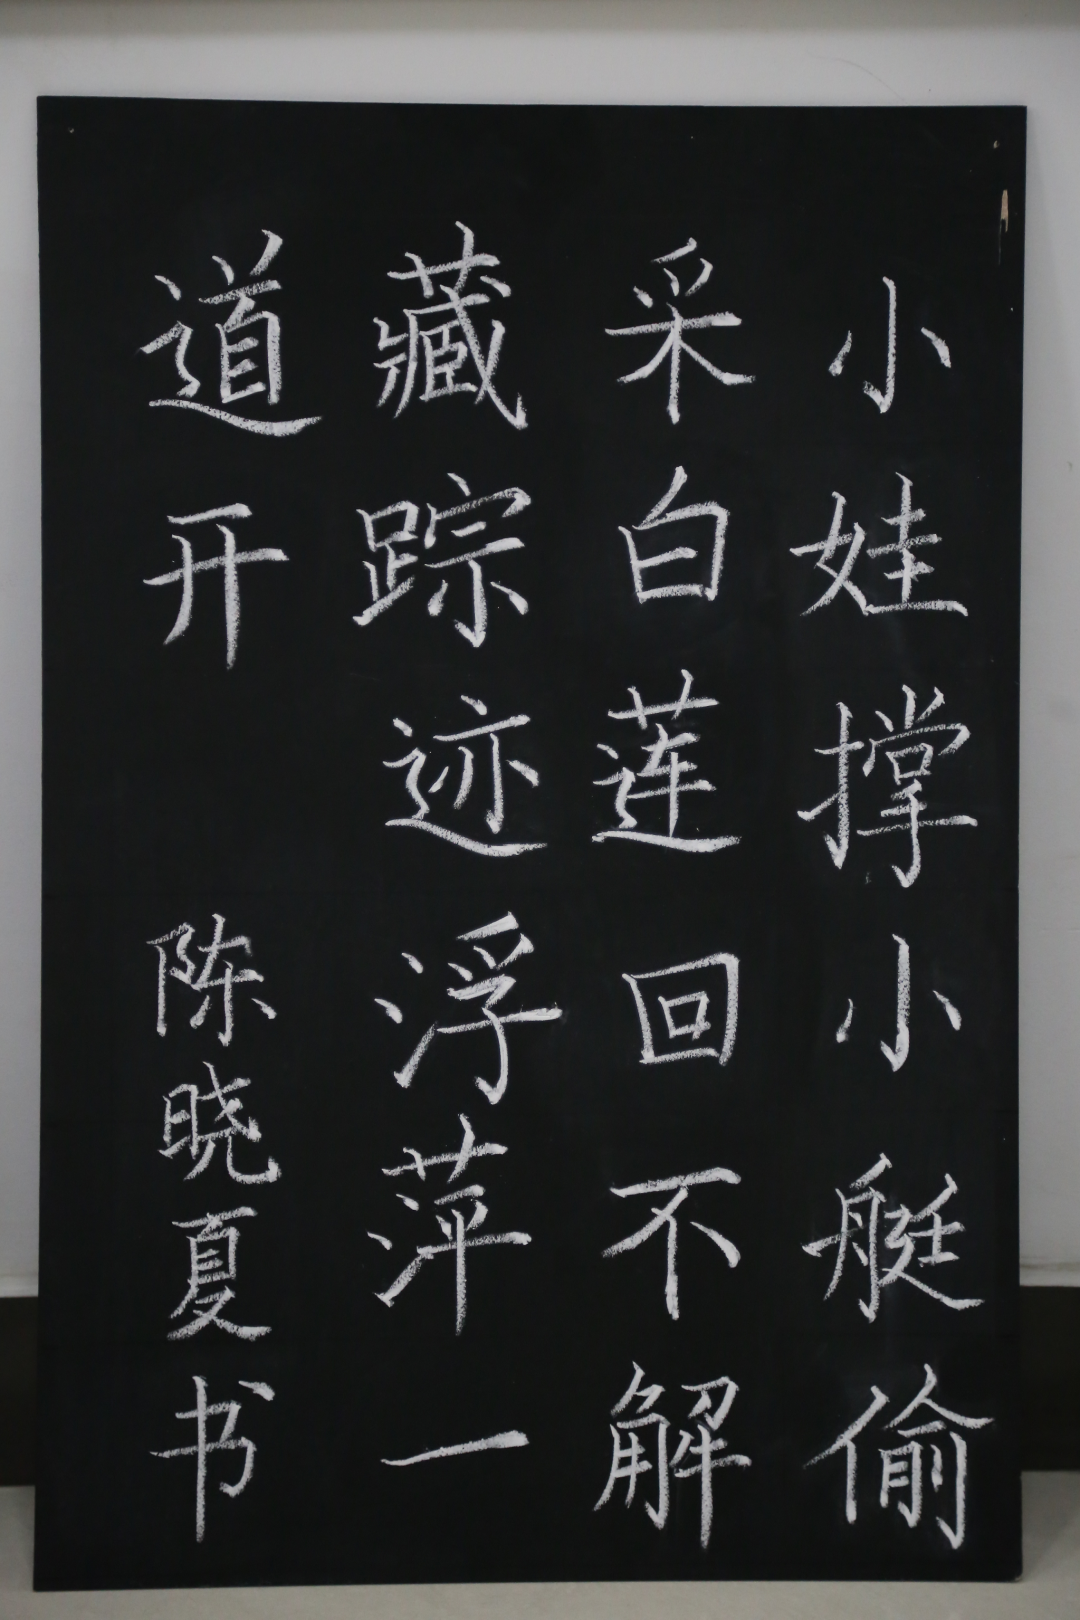 小娃撑小艇偷
采白莲回不解
藏踪迹浮萍一
道开
陈晓夏书